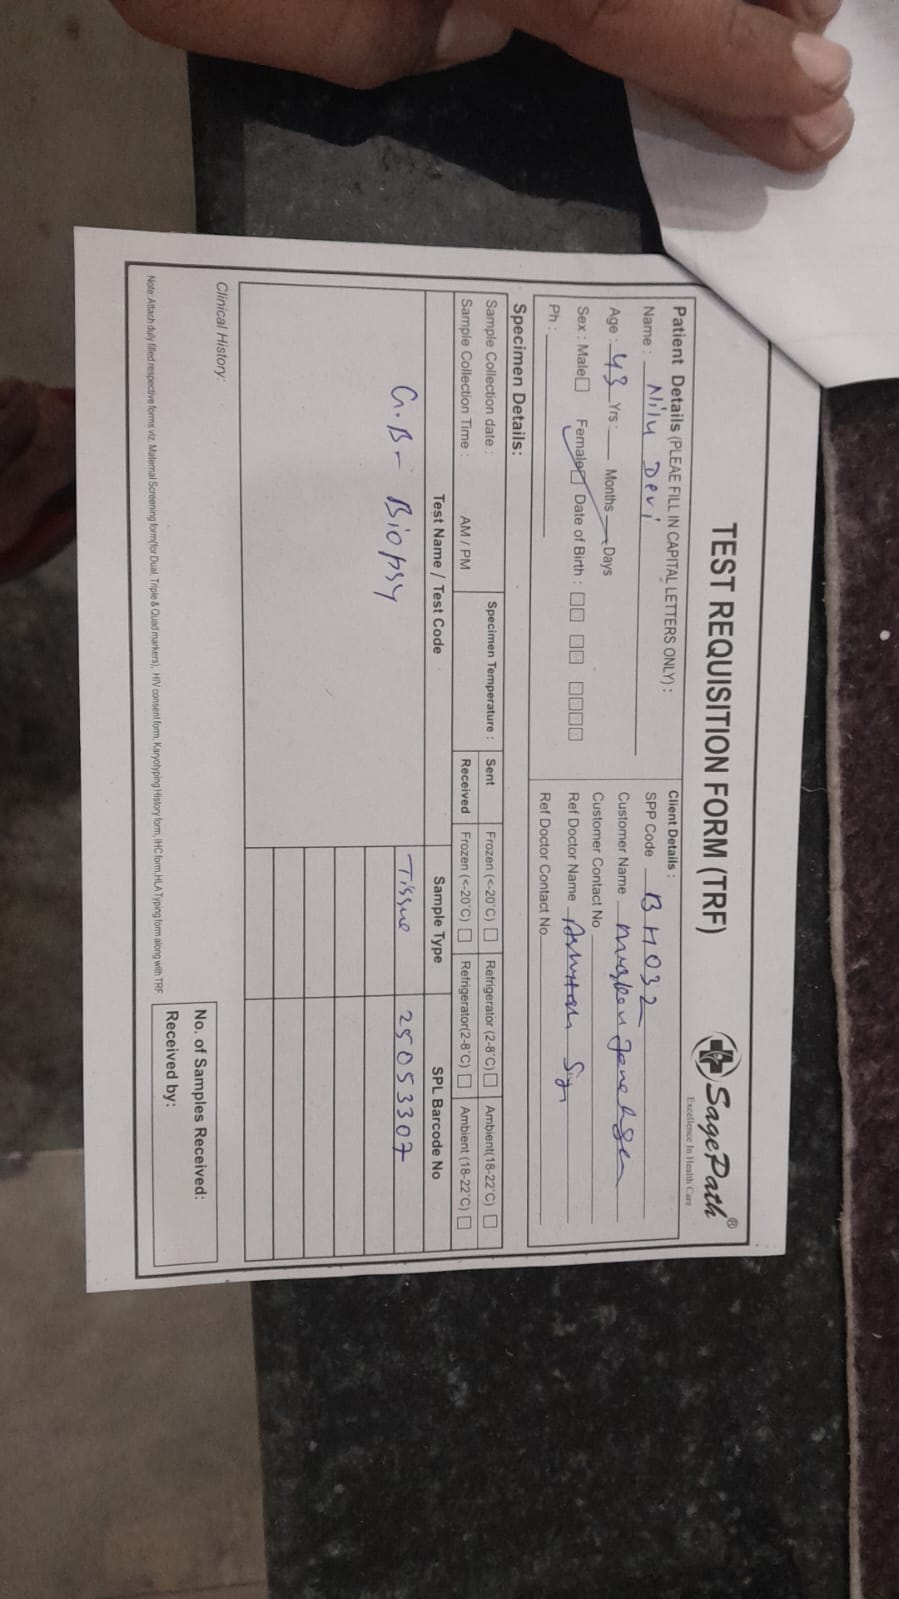 TEST REQUISITION FORM (TRF)
SagePath®
Excellence In Health Care
Patient Details (PLEAE FILL IN CAPITAL LETTERS ONLY) :
Name : Nilu Devi
Age : 43 Yrs : Months Days
Sex : Male Female Date of Birth :
Ph :
Client Details :
SPP Code BH032
Customer Name
Customer Contact No
Ref Doctor Name
Ref Doctor Contact No
Specimen Details:
Sample Collection date :
Sample Collection Time : AM / PM
Specimen Temperature :
Sent Frozen (<-20°C) Refrigerator (2-8°C) Ambient(18-22°C)
Received Frozen (<-20°C) Refrigerator(2-8°C) Ambient (18-22°C)
Test Name / Test Code Sample Type SPL Barcode No
G.B- Biopsy Tissue 25053307
Clinical History:
No. of Samples Received:
Received by:
Note: Attach duly filled respective forms viz. Maternal Screening form(for Dual, Triple & Quad markers), HIV consent form, Karyotyping History form, IHC form, HLA Typing form along with TRF